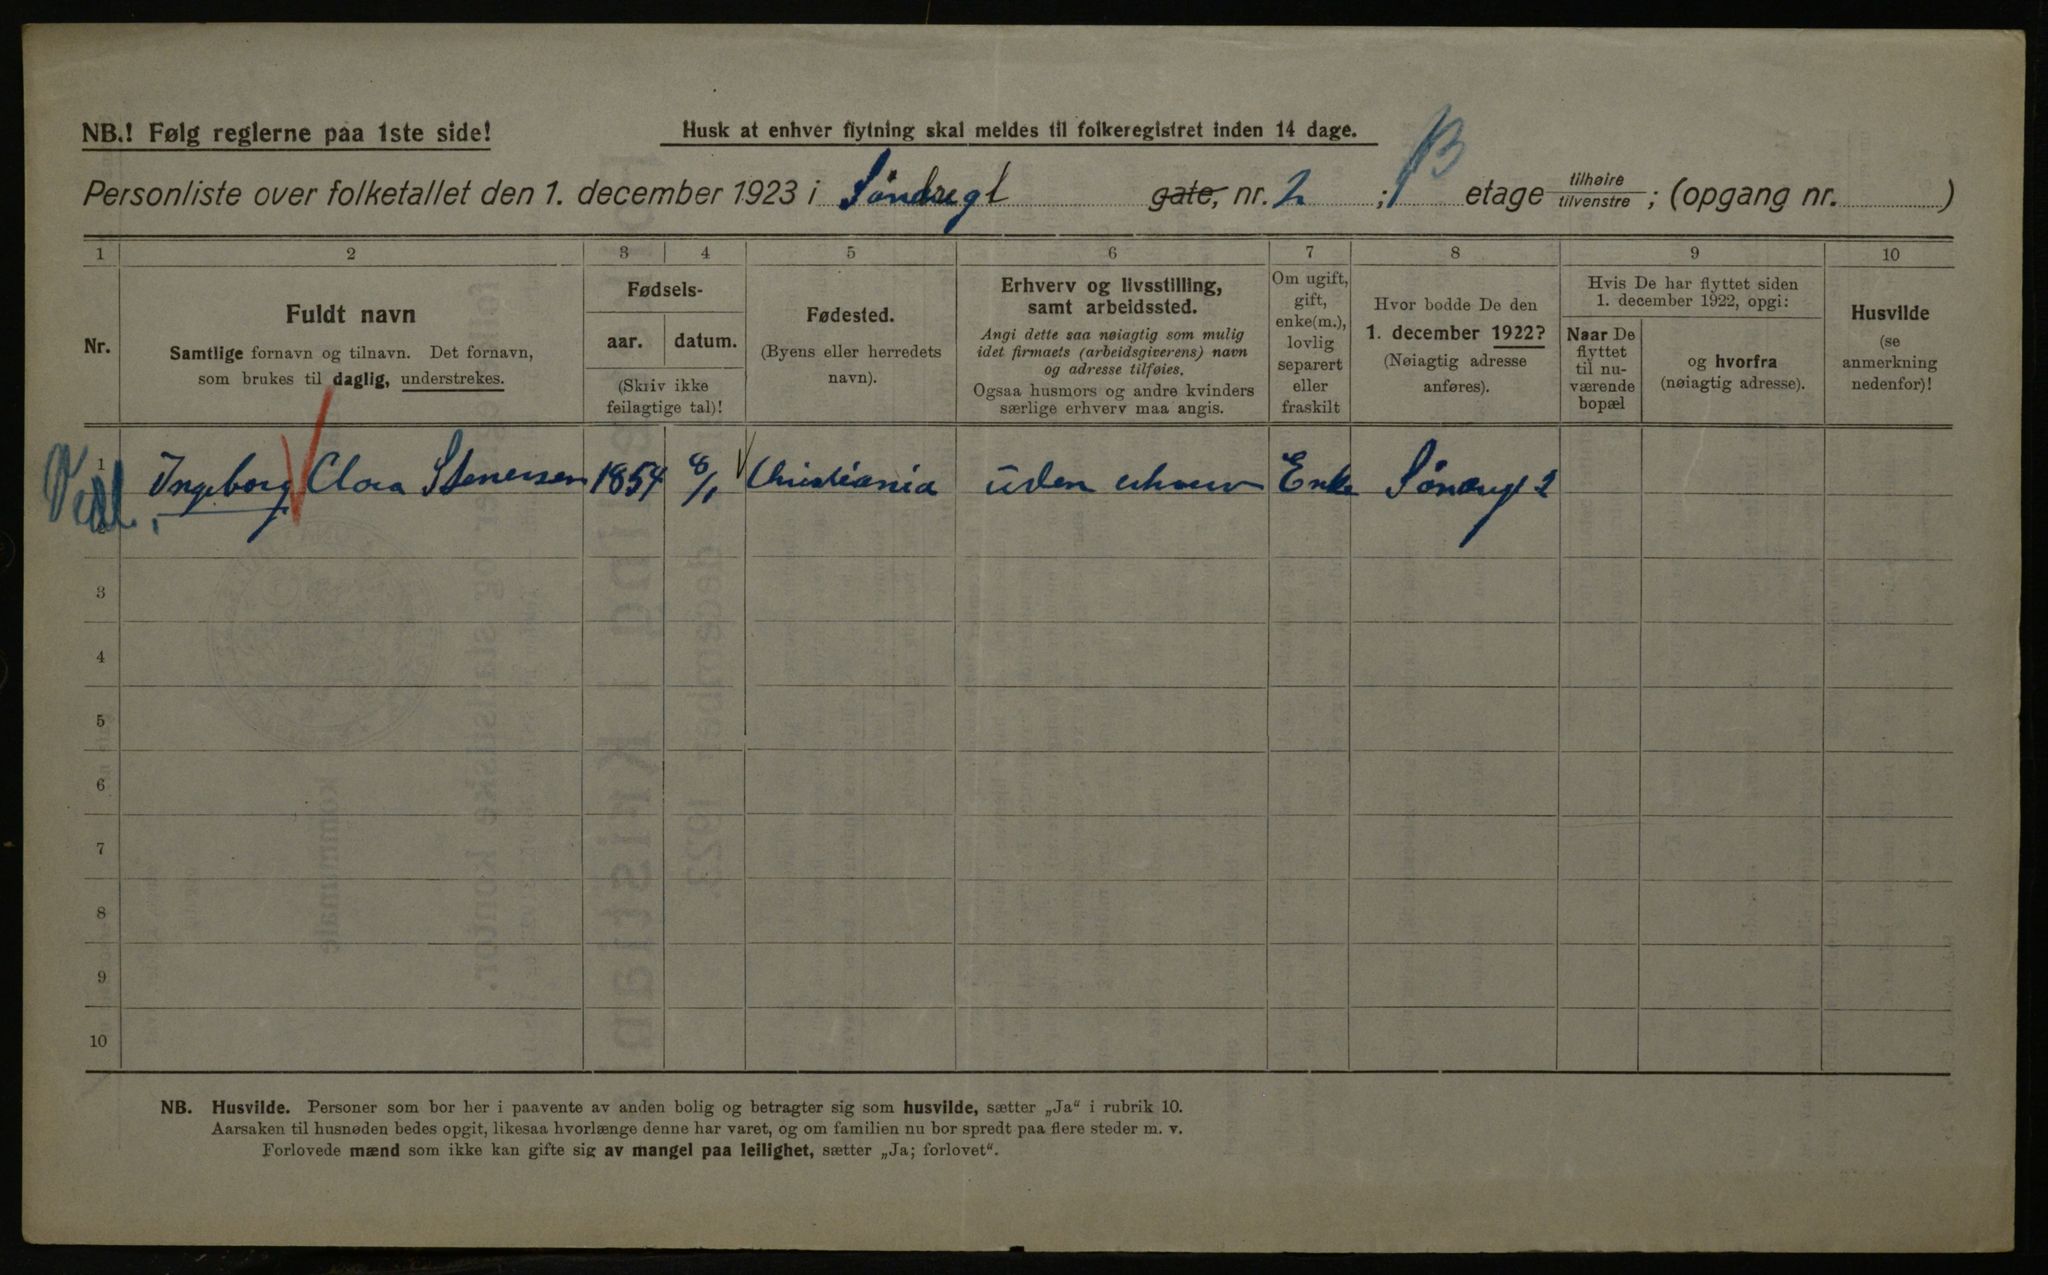 NB.! Følg reglerne paa 1ste side!
Husk at enhver flytning skal meldes til folkeregistret inden 14 dage.
Personliste over folketallet den 1. december 1923 i Søndregt gate, nr. 2 ; B etage tilhøire tilvenstre ; (opgang nr. )
1 2 3 4 5 6 7 8 9 10
Nr.
Fuldt navn
Samtlige fornavn og tilnavn. Det fornavn,
som brukes til daglig, understrekes.
Fødsels-
aar. datum.
(Skriv ikke
feilagtige tal)!
Fødested.
(Byens eller herredets
navn).
Erhverv og livsstilling,
samt arbeidssted.
Angi dette saa nøiagtig som mulig
idet firmaets (arbeidsgiverens) navn
og adresse tilføies.
Ogsaa husmors og andre kvinders
særlige erhverv maa angis.
Om ugift,
gift,
enke(m.),
lovlig
separert
eller
fraskilt
Hvor bodde De den
1. december 1922?
(Nøiagtig adresse
anføres).
Hvis De har flyttet siden
1. december 1922, opgi:
Naar De
flyttet
til nu-
værende
bopæl
og hvorfra
(nøiagtig adresse).
Husvilde
(se
anmerkning
nedenfor)!
1 Ingeborg Clara Stenersen 1854 8/1 Christiania uden erhverv Enke Søndregt 2
Vedl.
3
4
5
6
7
8
9
10
NB. Husvilde. Personer som bor her i paavente av anden bolig og betragter sig som husvilde, sætter „Ja“ i rubrik 10.
Aarsaken til husnøden bedes opgit, likesaa hvorlænge denne har varet, og om familien nu bor spredt paa flere steder m. v.
Forlovede mænd som ikke kan gifte sig av mangel paa leilighet, sætter „Ja; forlovet“.